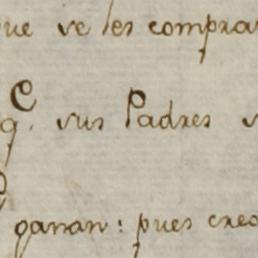 que ve les compra
q. sus Padres
ganan: pues creo